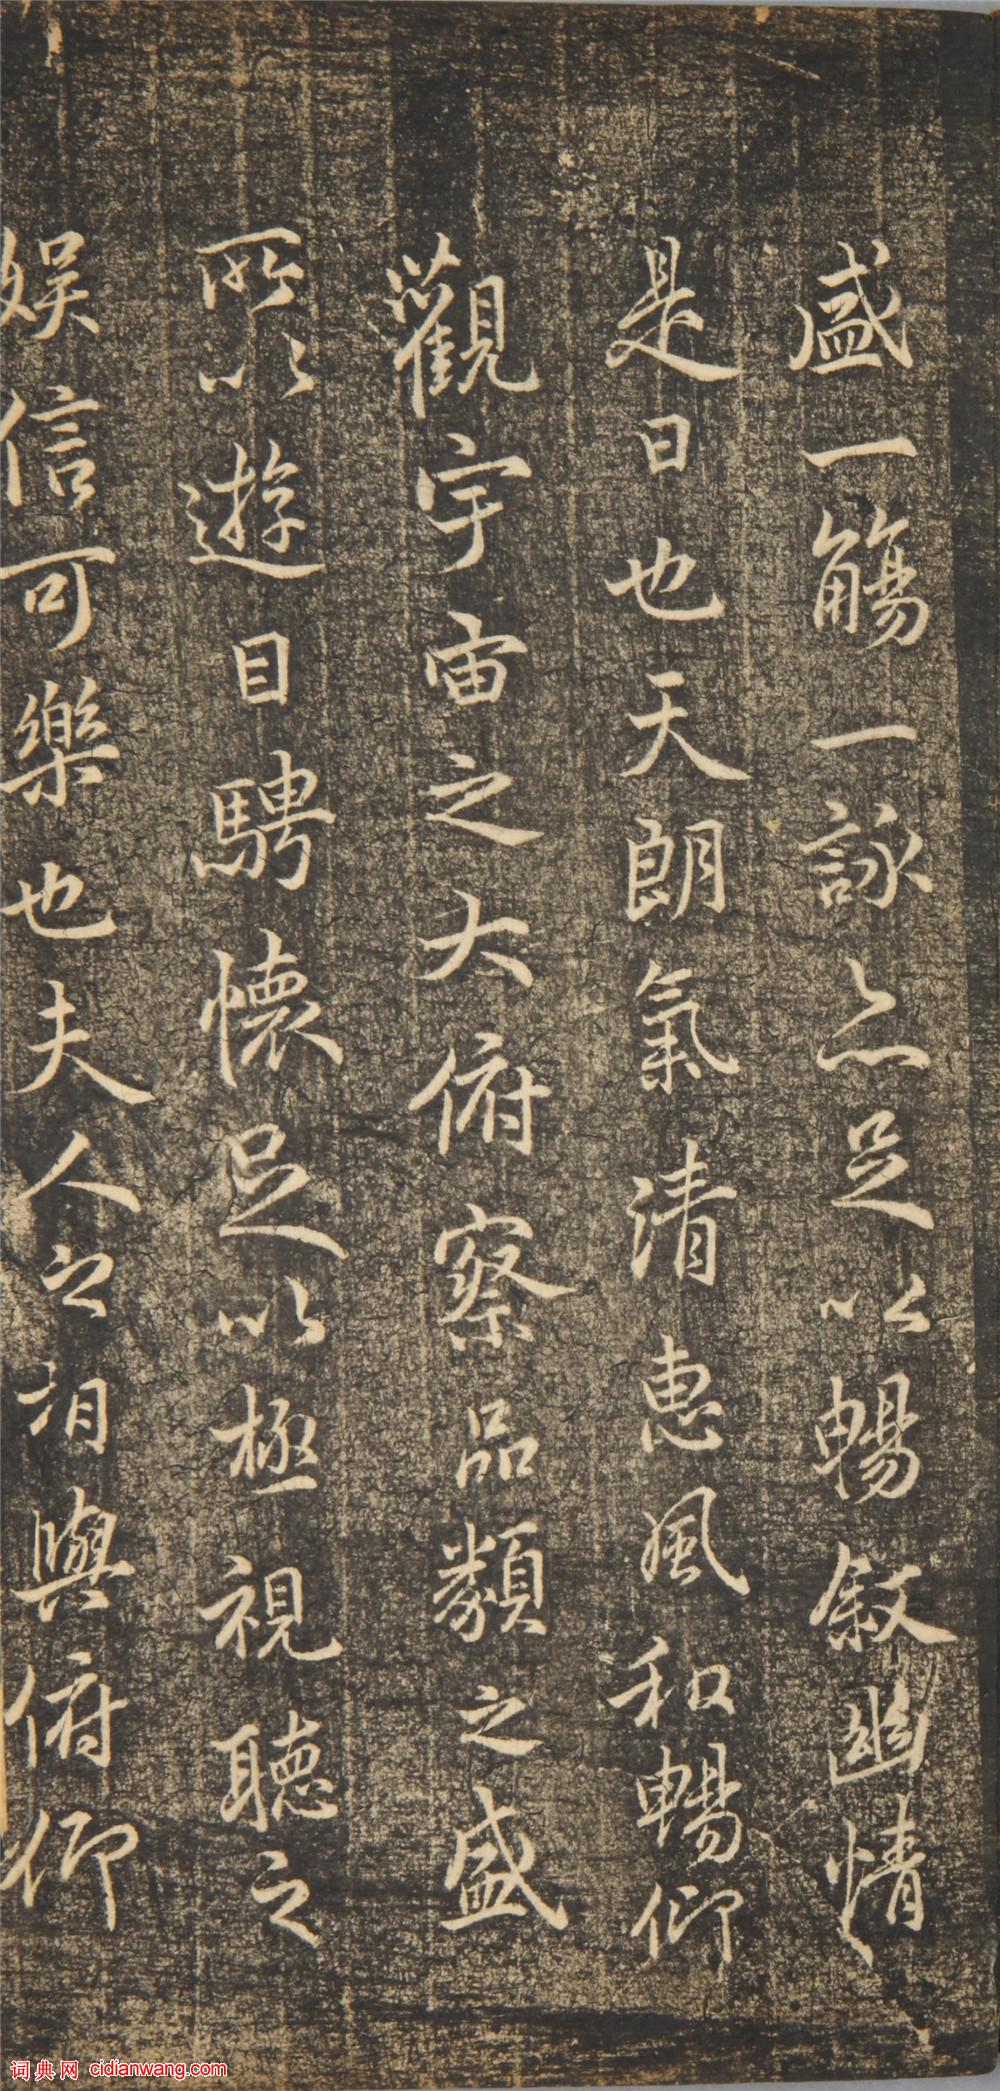 盛一觴一詠亦足以暢敘幽情
是日也天朗氣清惠風和暢仰
觀宇宙之大俯察品類之盛
所以遊目騁懷足以極視聽之
娛信可樂也夫人之相與俯仰
词典网 cidianwang.com